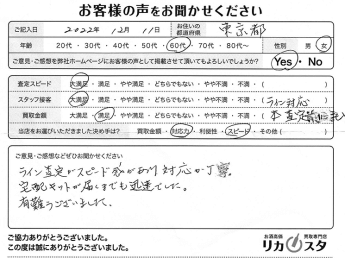 お客様の声をお聞かせください
ご記入日 2022年 12月 11日 お住いの都道府県 東京都
年齢 20代・30代・40代・50代・60代・70代・80代〜 性別 男・女
ご意見・ご感想を弊社ホームページにお客様の声として掲載させて頂いてもよろしいでしょうか? Yes・No
査定スピード 大満足・満足・やや満足・どちらでもない・やや不満・不満・(
スタッフ接客 大満足・満足・やや満足・どちらでもない・やや不満・不満・( ライン対応
買取金額 大満足・満足・やや満足・どちらでもない・やや不満・不満・( 本査定
当店をお選びいただきました決め手は? 買取金額・対応力・利便性・スピード・その他(
ご意見・ご感想などぜひお聞かせください
ライン査定がスピード感があり対応が丁寧。
宅配キットが届くまでも迅速でした。
有難うございました。
ご協力ありがとうございました。
この度は誠にありがとうございました。
お酒高価 買取専門店
リカスタ